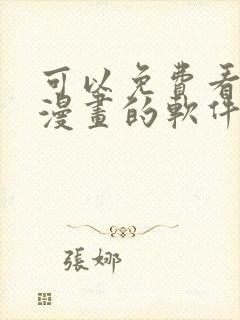 可以免費看
漫畫的軟件
張娜